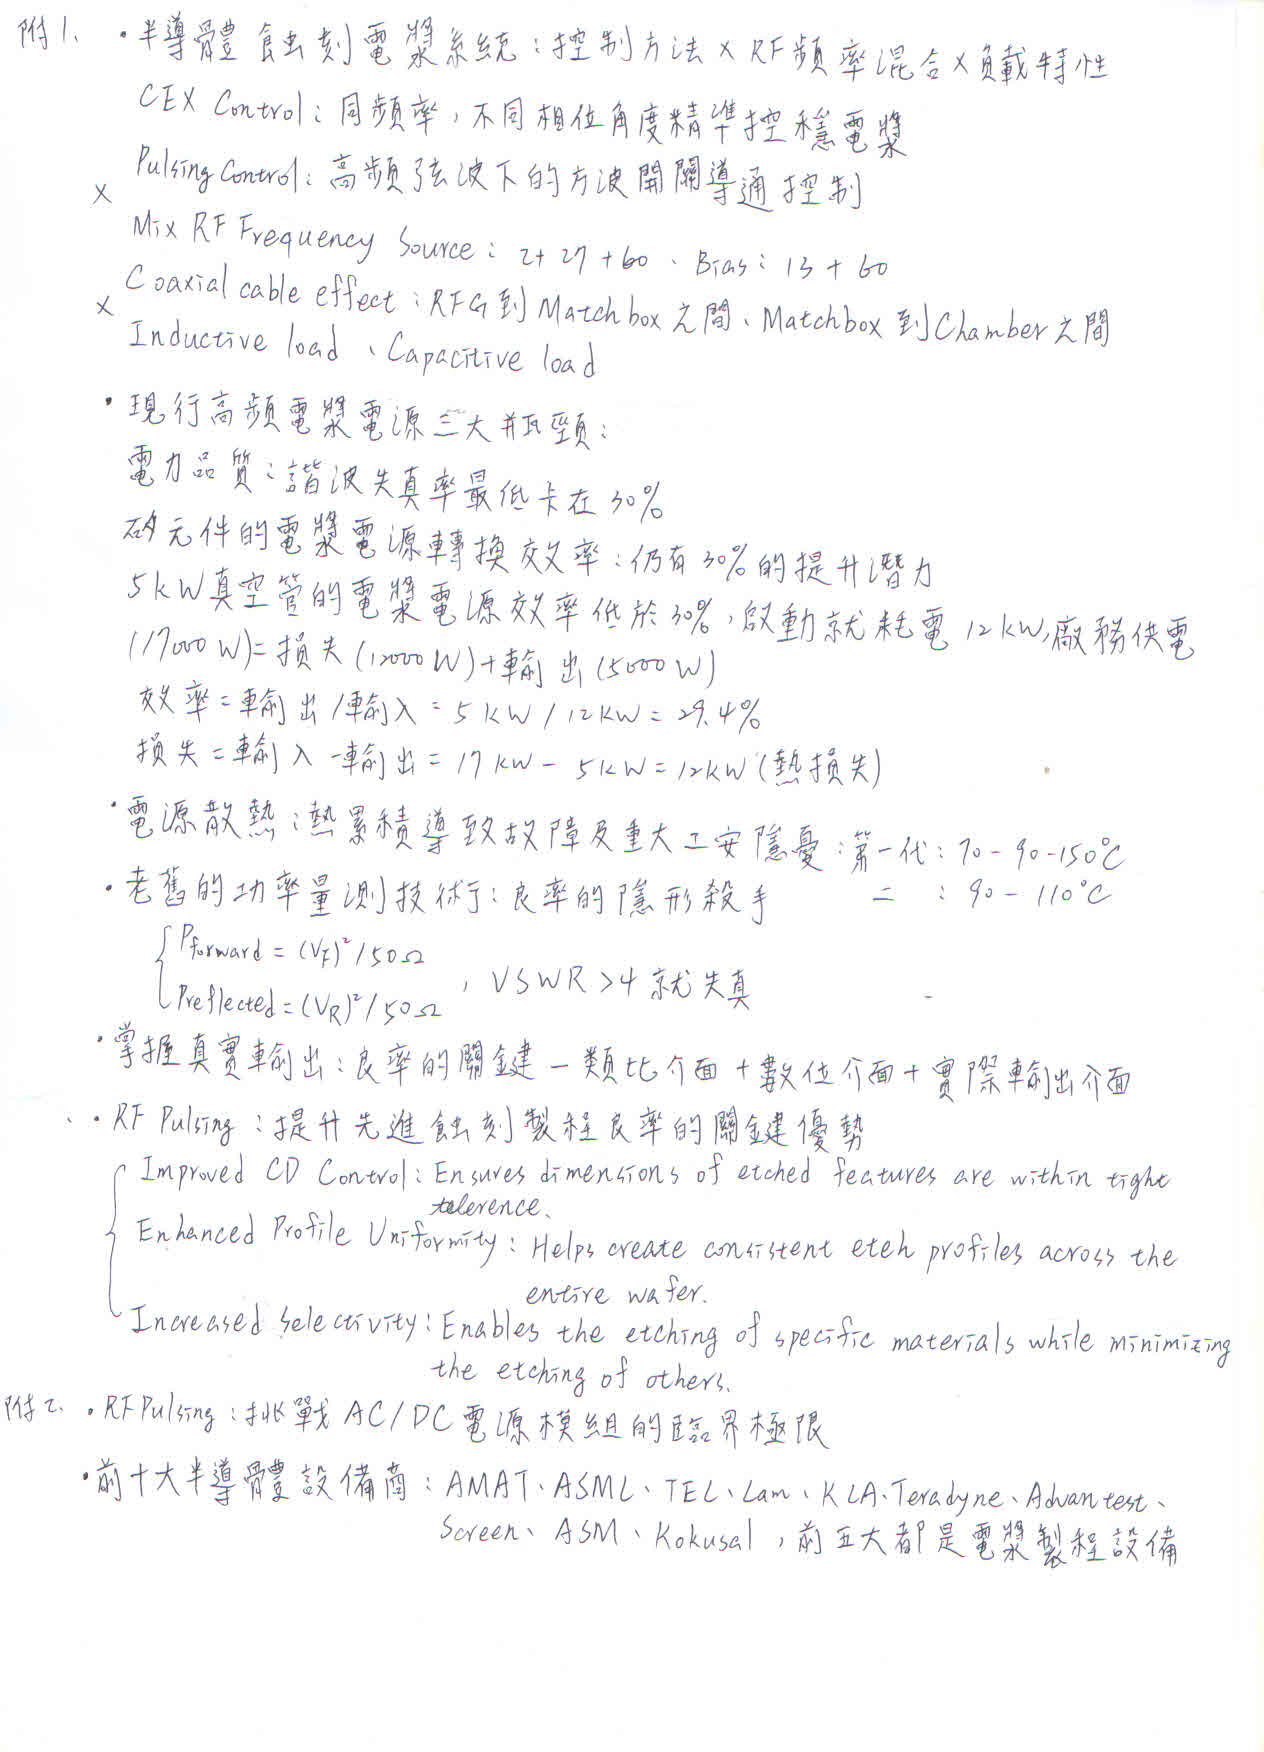 附1. ・半導體蝕刻電漿系統：控制方法 × RF頻率混合 × 負載特性
CEX Control：同頻率，不同相位角度精準控穩電漿
Pulsing Control：高頻弦波下的方波開關導通控制
×
Mix RF Frequency Source：2+27+60、Bias：13+60
Coaxial cable effect：RFG到Matchbox之間、Matchbox到Chamber之間
×
Inductive load、Capacitive load
・現行高頻電漿電源三大瓶頸：
電力品質：諧波失真率最低卡在30%
矽元件的電漿電源轉換效率：仍有30%的提升潛力
5kW真空管的電漿電源效率低於30%，啟動就耗電12kW，廠務供電
(17000W)=損失(12000W)+輸出(5000W)
效率=輸出/輸入=5KW/12KW=29.4%
損失=輸入-輸出=17KW-5KW=12KW(熱損失)
・電源散熱：熱累積導致故障及重大工安隱憂：第一代：70-90-150℃
・老舊的功率量測技術：良率的隱形殺手 二：90-110℃
Pforward=(VF)²/50Ω
，VSWR>4就失真
Preflected=(VR)²/50Ω
・掌握真實輸出：良率的關鍵－類比介面+數位介面+實際輸出介面
・RF Pulsing：提升先進蝕刻製程良率的關鍵優勢
Improved CD Control：Ensures dimensions of etched features are within tight
tolerence.
Enhanced Profile Uniformity：Helps create consistent etch profiles across the
entire wafer.
Increased Selectivity：Enables the etching of specific materials while minimizing
the etching of others.
附2. ・RF Pulsing：挑戰AC/DC電源模組的臨界極限
・前十大半導體設備商：AMAT、ASML、TEL、Lam、KLA、Teradyne、Advantest、
Screen、ASM、Kokusai，前五大都是電漿製程設備